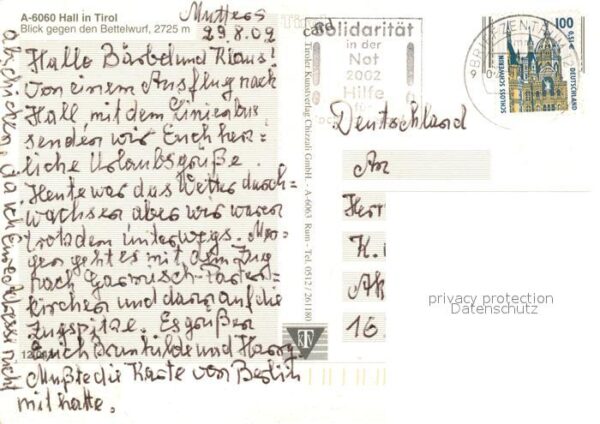 A-6060 Hall in Tirol
Blick gegen den Bettelwurf, 2725 m
Mutters
29.8.02
Hallo Bärbel und Klaus!
Von einem Ausflug nach
Hall mit dem Linienbus
senden wir Euch herz-
liche Urlaubsgrüße.
Heute war das Wetter durch-
wachsen aber wir waren
trotzdem unterwegs. Mor-
gen geht es mit dem Zug
nach Garmisch-Parten-
kirchen und dann auf die
Zugspitze. Es grüßen
Euch Brunhilde und Harry
Mußte die Karte von Berlin
mit hatte.
abschicken, da ich Eure Adresse nicht
Tiroler Kunstverlag Chizzali GmbH. - A-6063 Rum - Tel. 0512 / 261180
Solidarität
in der
Not
2002
Hilfe
BRIEFZENTRUM
100
0,51 €
SCHLOSS SCHWERIN
DEUTSCHLAND
Deutschland
An
Herr
K.
16
privacy protection
Datenschutz